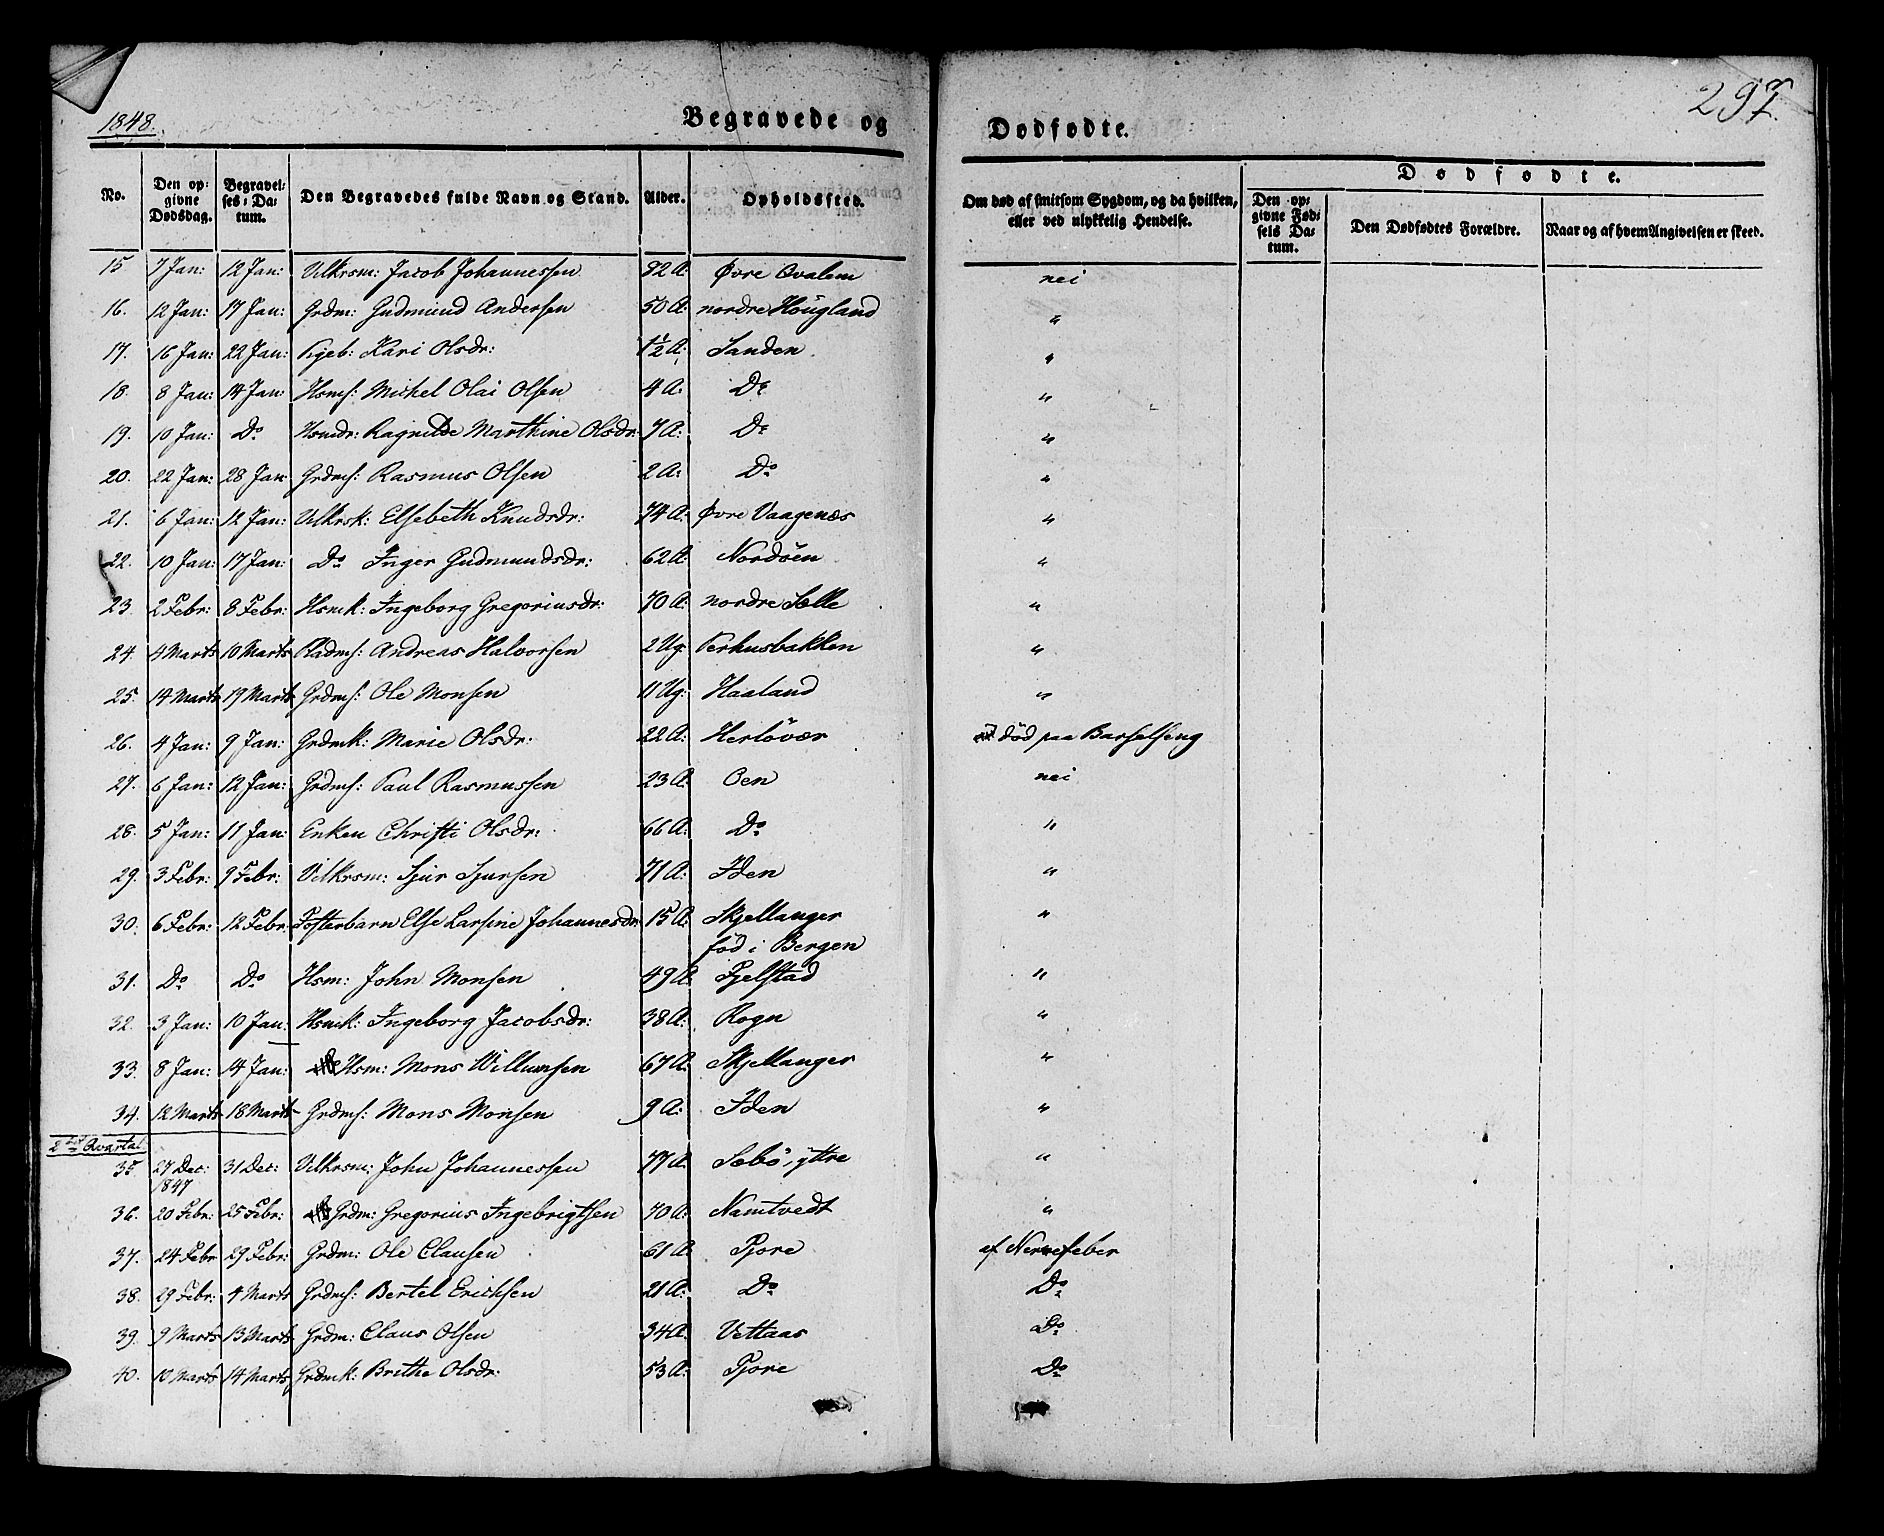 1848.
Begravede og
Dødfødte.
297.
No.
Den op-
givne
Dødsdag.
Begravel-
ses-Da-
tum.
Den Begravedes fulde Navn og Stand.
Alder.
Opholdssted.
Om død af smitsom Sygdom, og da hvilken,
eller ved ulykkelig Hendelse.
Dødfødte.
Den op-
givne Fød-
sels Da-
tum.
Den Dødfødtes Forældre.
Naar og af hvem Angivelsen er skeed.
15 7 Jan: 12 Jan: Vilkrsm: Jacob Johannessen 82 A: Øvre Qvalem nei
16. 12 Jan: 17 Jan: Grdm: Gudmund Andersen 50 A: nordre Höugland "
17. 16 Jan: 22 Jan: Pigeb: Kari Olsdr: 1½ A: Sanden. "
18. 8 Jan: 14 Jan: Hsms: Michel Olai Olsen 4 A: Do "
19. 10 Jan: Do Hsmdr: Ragnilde Marthine Olsdr: 7 A: Do "
20. 22 Jan: 28 Jan Grdms: Rasmus Olsen 2 A: Do "
21. 6 Jan: 12 Jan: Vilkrsk: Elsebeth Knudsdr: 74 A: Øvre Vaagenæs "
22. 10 Jan: 17 Jan: Do Inger Gudmundsdr: 62 A: Nordöen "
23. 2 Febr: 8 Febr: Hsmk: Ingeborg Gregoriusdr: 70 A: nordre Sælle "
24. 4 Marts 10 Marts Pladms: Andreas Halvorsen 2 Ug: Perhusbakken "
25. 14 Marts 19 Marts Grdms: Ole Monsen 11 Ug: Haaland "
26. 4 Jan: 9 Jan: Grdmk: Marie Olsdr: 22 A: Herløvær død paa Barselseng
27. 6 Jan: 12 Jan: Grdms: Paul Rasmussen 23 A: Oen nei
28. 5 Jan: 11 Jan: Enken Christi Olsdr: 66 A: Do "
29. 3 Febr: 9 Febr: Vilkrsm: Sjur Sjursen 71 A: Iden "
30. 6 Febr: 12 Febr: Fosterbarn Else Larsine Johannesdr: 15 A: Skjellanger "
fød i Bergen
31. Do Do Hsm: John Monsen 49 A: Fjelstad "
32. 3 Jan: 10 Jan: Hsmk: Ingeborg Jacobsdr: 38 A: Rogn "
33. 8 Jan: 14 Jan: Hsm: Mons Willumsen 67 A: Skjellanger "
34. 12 Marts 18 Marts Grdms: Mons Monsen 9 A: Iden "
2det Qvartal
35. 27 Dec: 31 Dec: Vilkrsm: John Johannessen 77 A: Sæbö, yttre "
1847
36. 20 Febr: 25 Febr: Grdm: Gregorius Ingebrigtsen 70 A: Namtvedt "
37. 24 Febr 29 Febr: Grdm: Ole Clausen 61 A: Fjore af Nervefeber
38. 29 Febr: 4 Marts Grdms: Bertel Ericksen 21 A: Do Do
39. 9 Marts 13 Marts Grdm: Claus Olsen 34 A: Vettaas Do
40. 10 Marts 14 Marts Grdmk: Brithe Olsdr: 53 A: Fjore Do